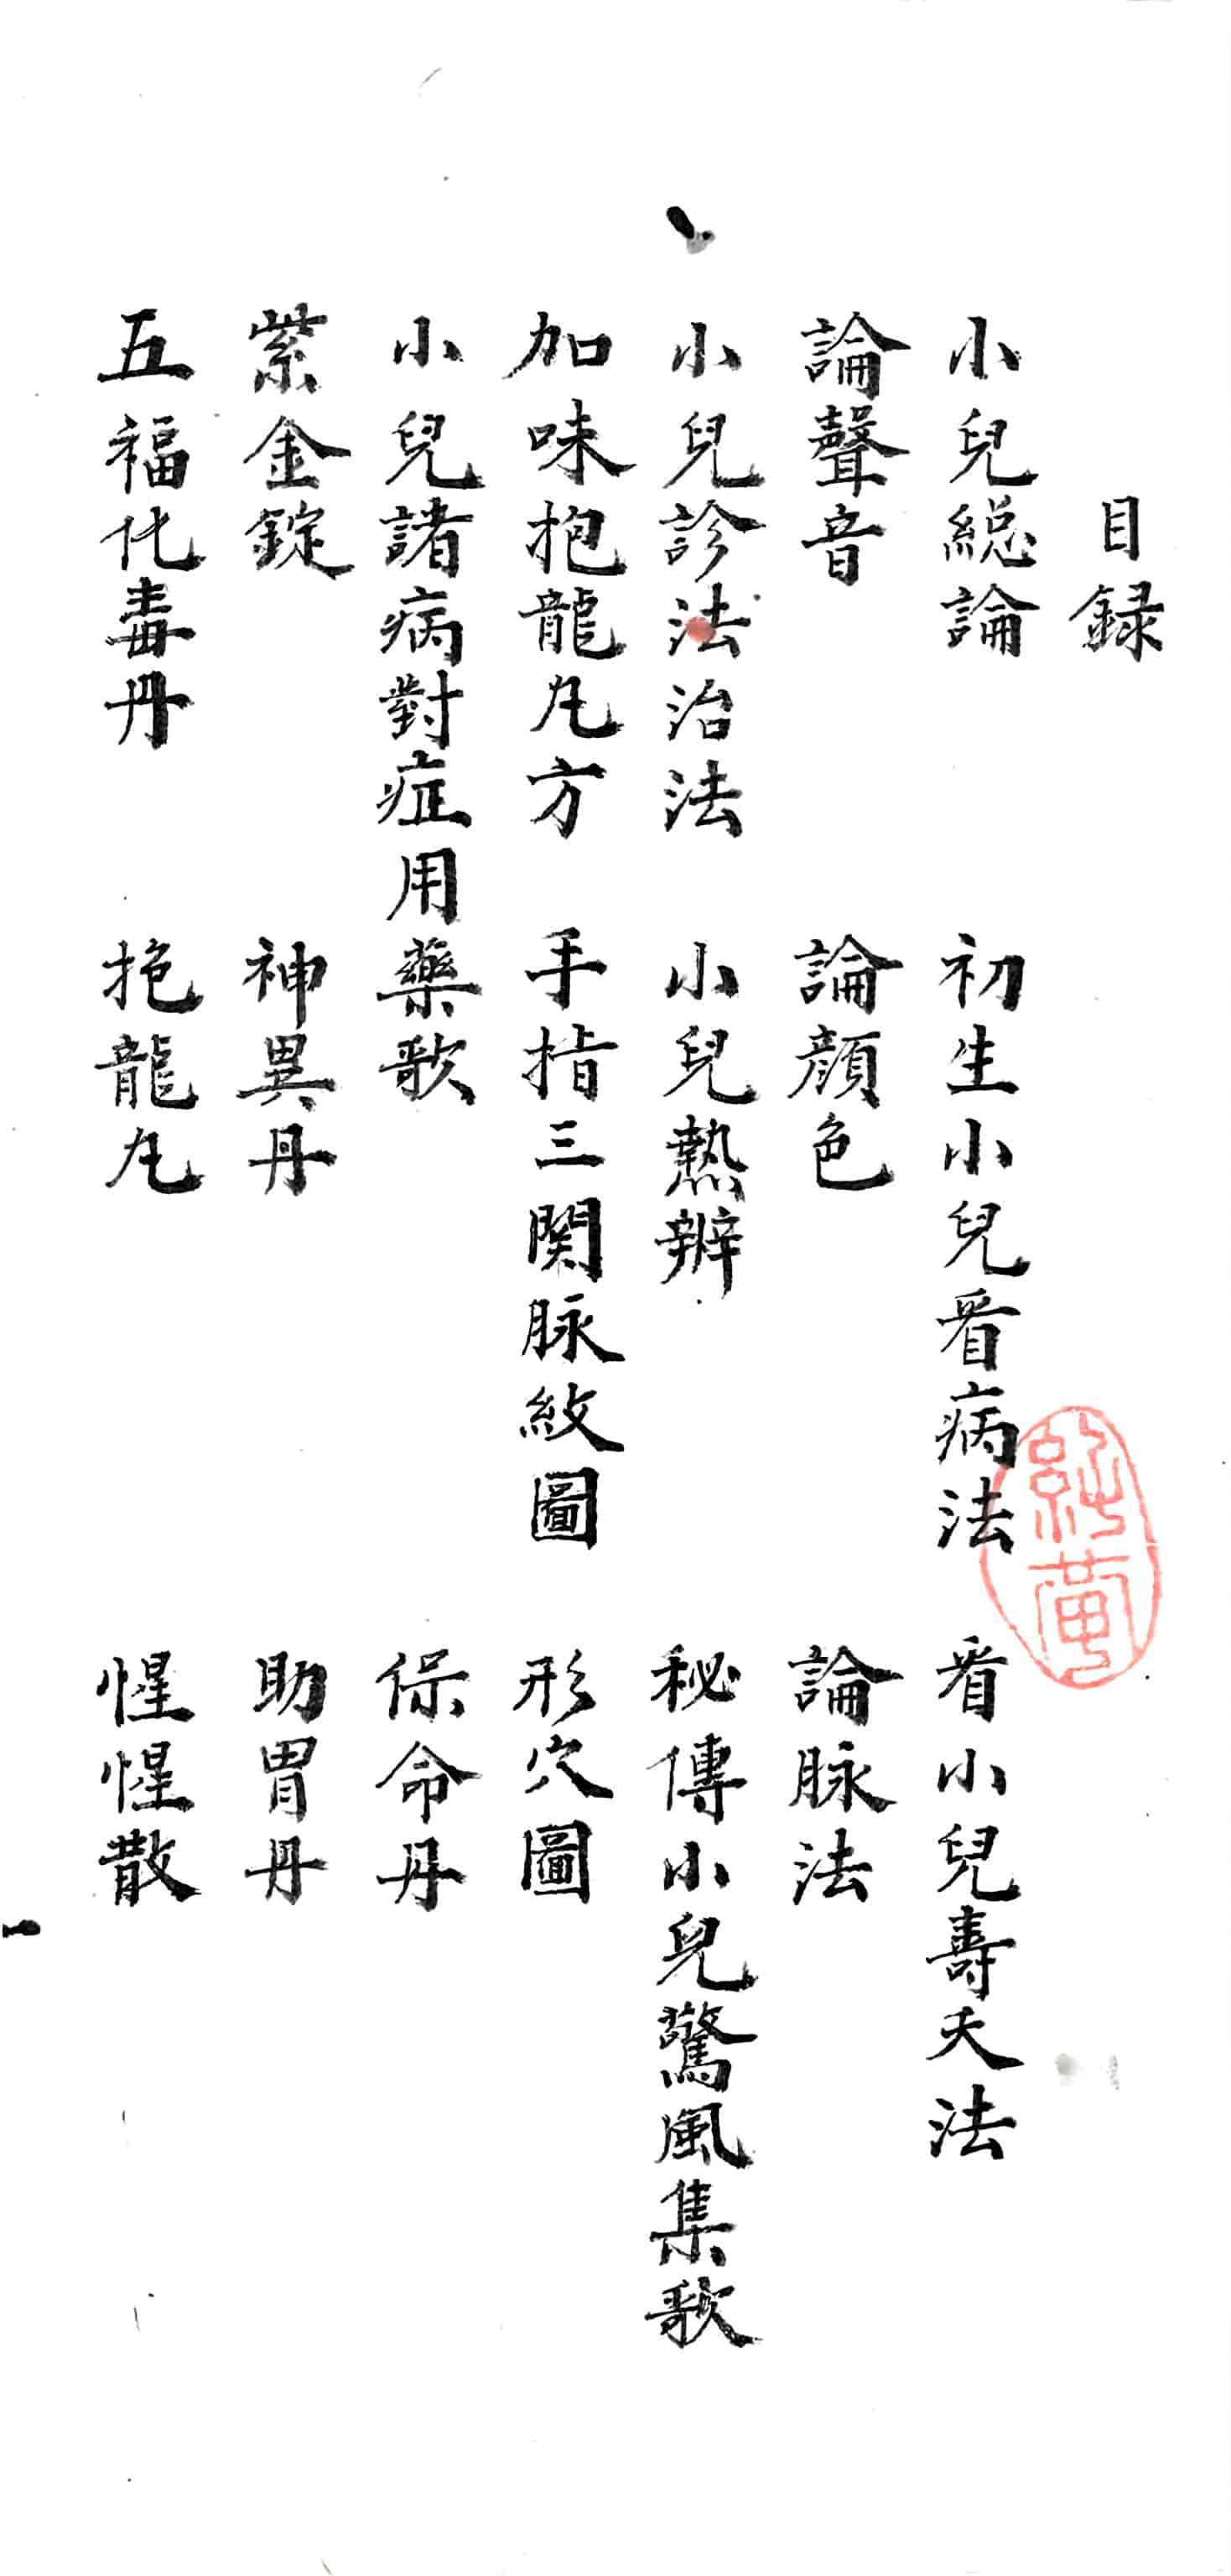 目録
小兒総論　初生小兒看病法　看小兒壽夭法
論聲音　論顔色　論脉法
小兒診法治法　小兒熱辨　秘傳小兒驚風集歌
加味抱龍九方　手指三関脉紋圖　形穴圖
小兒諸病對症用藥歌　保命丹
紫金錠　神異丹　助胃丹
五福化毒丹　抱龍九　惺惺散